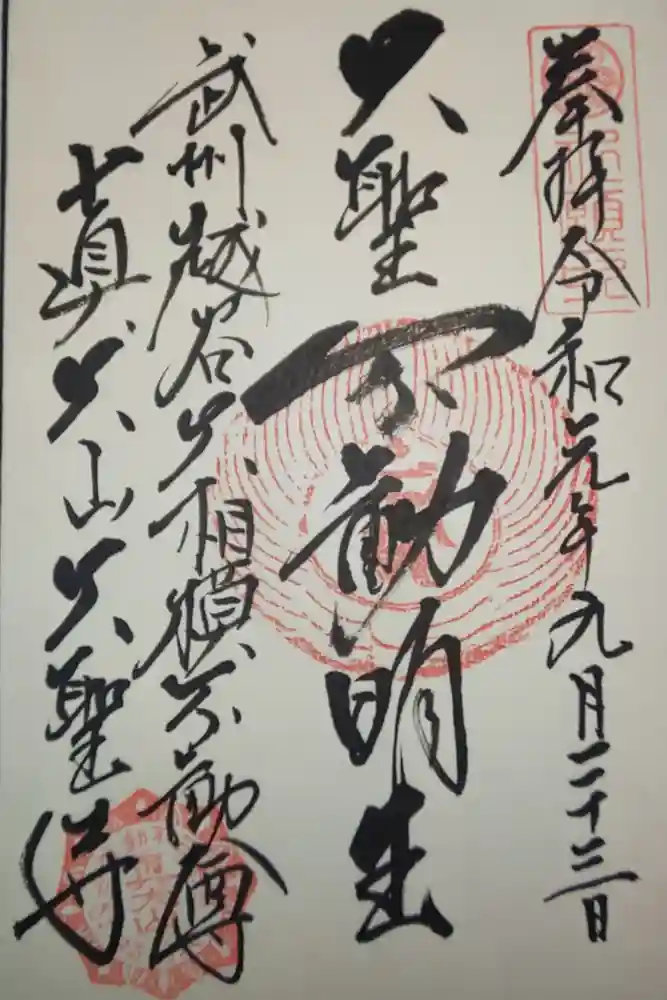 奉拝 令和元年九月二十三日
大聖不動明王
武州越谷大相模不動尊
真大山大聖寺